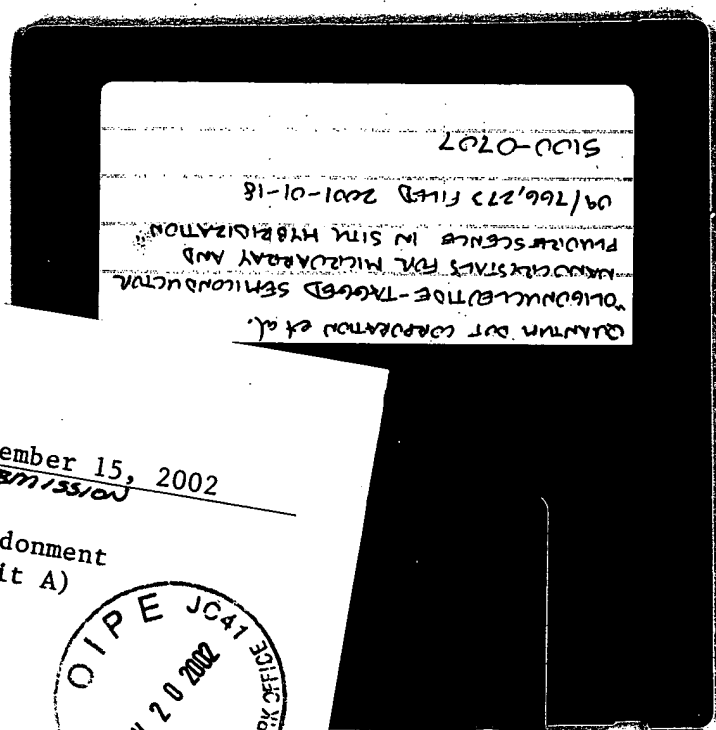 QUANTUM DOT CORPORATION et al.
"OLIGONUCLEOTIDE-TAGGED SEMICONDUCTOR
NANOCRYSTALS FOR MICROARRAY AND
FLUORESCENCE IN SITU HYBRIDIZATION"
09/766,273 FILED 2001-01-18
5100-0707
ember 15, 2002
EMISSION
donment
it A)
OIPE JC41
20 2002